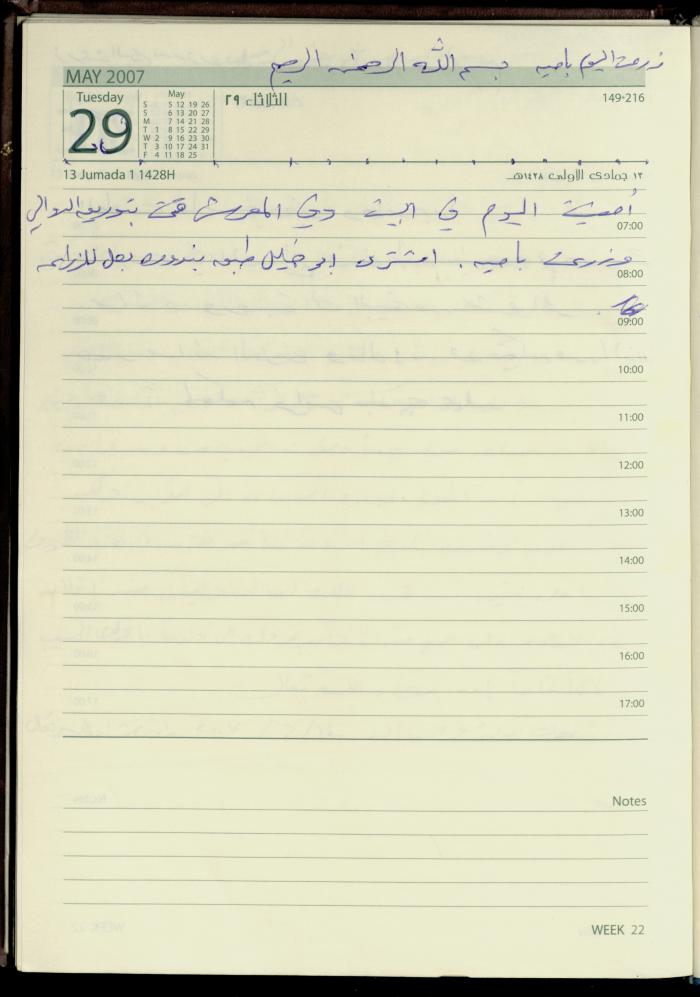 زرعت اليوم بامية بسم الله الرحمن الرحيم
MAY 2007
Tuesday
29
May
S 5 12 19 26
S 6 13 20 27
M 7 14 21 28
T 1 8 15 22 29
W 2 9 16 23 30
T 3 10 17 24 31
F 4 11 18 25
الثلاثاء ٢٩
149-216
13 Jumada 1 1428H
١٣ جمادى الاولى ١٤٢٨هـ
أمضيت اليوم في البيت وفي المعرش قمت بتوريق الدوالي
07:00
وزرعت باميه. اشترى ابو خليل طبق بندوره بعل للزراعه
08:00
09:00
10:00
11:00
12:00
13:00
14:00
15:00
16:00
17:00
Notes
WEEK 22